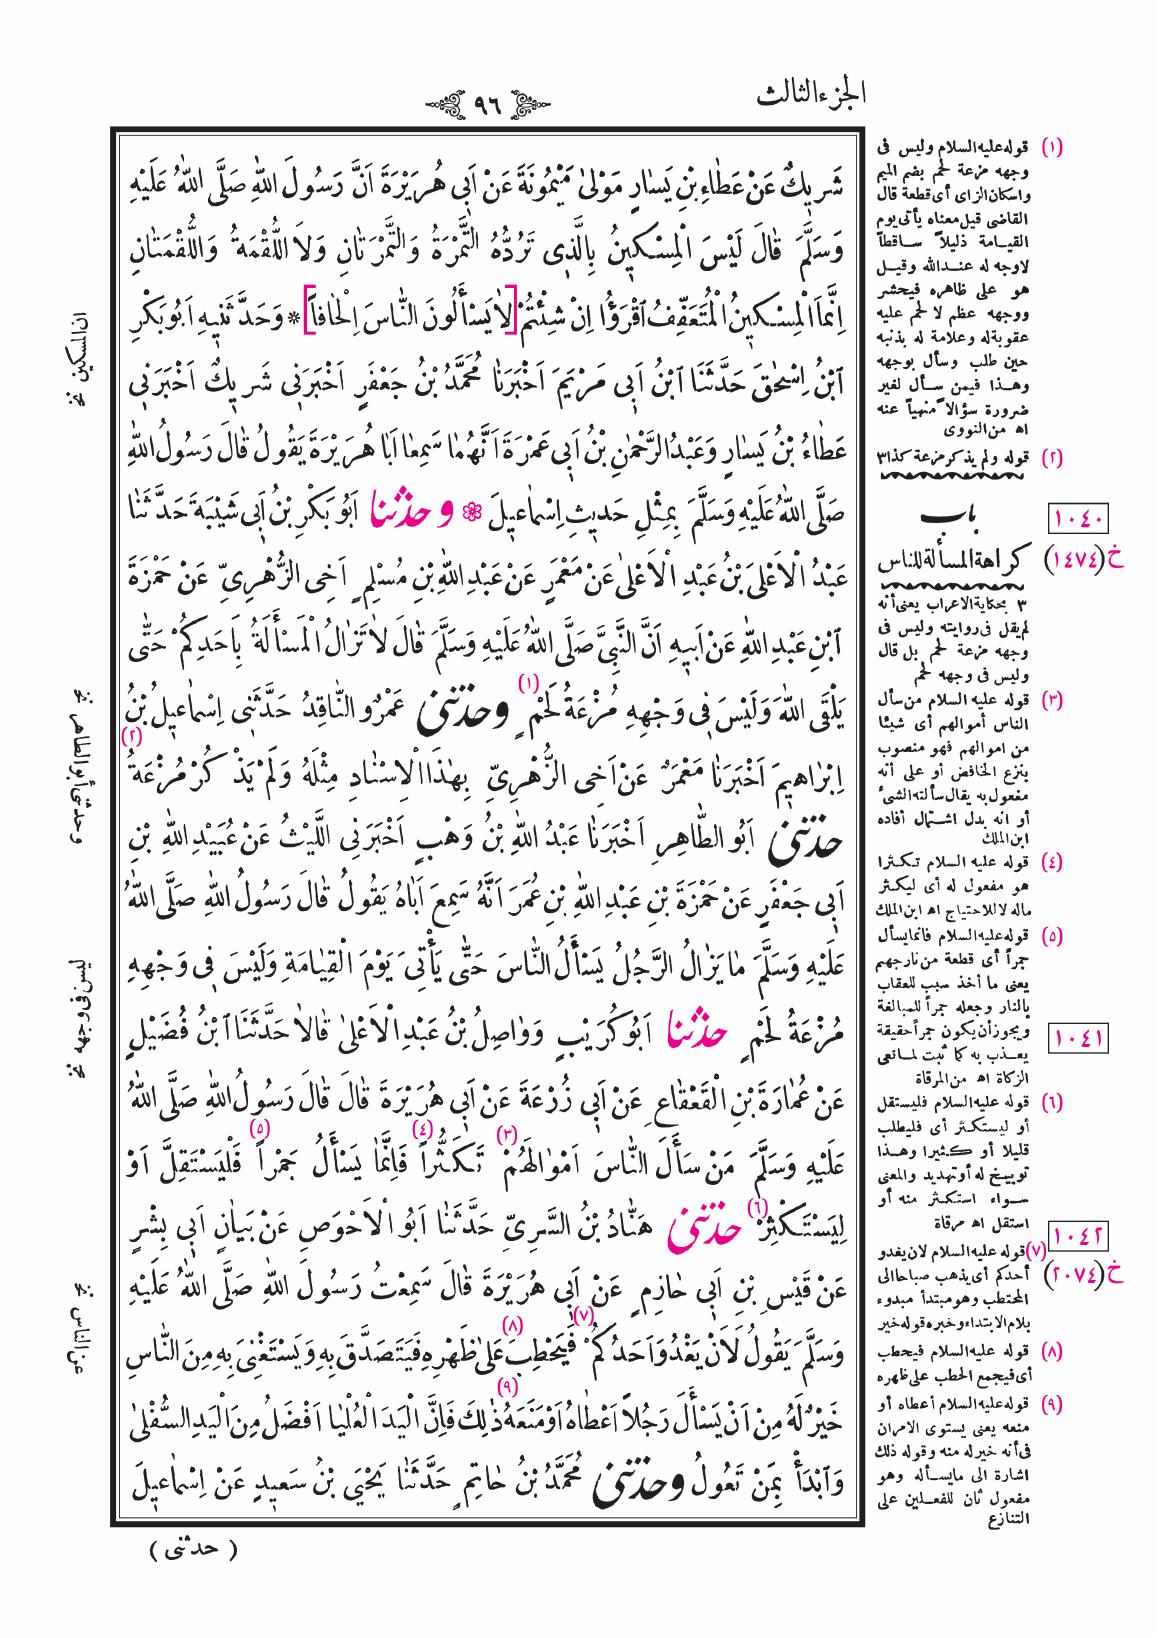 الجزء الثالث
٩٦
شَرِيكٌ عَنْ عَطَاءِ بْنِ يَسَارٍ مَوْلٰى مَيْمُونَةَ عَنْ اَبِى هُرَيْرَةَ اَنَّ رَسُولَ اللّٰهِ صَلَّى اللّٰهُ عَلَيْهِ
وَسَلَّمَ قَالَ لَيْسَ الْمِسْكِينُ بِالَّذِى تَرُدُّهُ التَّمْرَةُ وَالتَّمْرَتَانِ وَلَا اللُّقْمَةُ وَاللُّقْمَتَانِ
اِنَّمَا الْمِسْكِينُ الْمُتَعَفِّفُ اقْرَؤُا اِنْ شِئْتُمْ [لَا يَسْأَلُونَ النَّاسَ اِلْحَافاً] * وَحَدَّثَنِيهِ اَبُو بَكْرِ
ابْنُ اِسْحٰقَ حَدَّثَنَا ابْنُ اَبِى مَرْيَمَ اَخْبَرَنَا مُحَمَّدُ بْنُ جَعْفَرٍ اَخْبَرَنِى شَرِيكٌ اَخْبَرَنِى
عَطَاءُ بْنُ يَسَارٍ وَعَبْدُ الرَّحْمٰنِ بْنُ اَبِى عَمْرَةَ اَنَّهُمَا سَمِعَا اَبَا هُرَيْرَةَ يَقُولُ قَالَ رَسُولُ اللّٰهِ
صَلَّى اللّٰهُ عَلَيْهِ وَسَلَّمَ بِمِثْلِ حَدِيثِ اِسْمَاعِيلَ ۞ وحدثنا اَبُو بَكْرِ بْنُ اَبِى شَيْبَةَ حَدَّثَنَا
عَبْدُ الْاَعْلَى بْنُ عَبْدِ الْاَعْلٰى عَنْ مَعْمَرٍ عَنْ عَبْدِ اللّٰهِ بْنِ مُسْلِمٍ اَخِى الزُّهْرِىِّ عَنْ حَمْزَةَ
ابْنِ عَبْدِ اللّٰهِ عَنْ اَبِيهِ اَنَّ النَّبِىَّ صَلَّى اللّٰهُ عَلَيْهِ وَسَلَّمَ قَالَ لَا تَزَالُ الْمَسْأَلَةُ بِاَحَدِكُمْ حَتّٰى
يَلْقَى اللّٰهَ وَلَيْسَ فِى وَجْهِهِ مُزْعَةُ لَحْمٍ (١) وحدثنى عَمْرٌو النَّاقِدُ حَدَّثَنِى اِسْمَاعِيلُ بْنُ
اِبْرَاهِيمَ اَخْبَرَنَا مَعْمَرٌ عَنْ اَخِى الزُّهْرِىِّ بِهٰذَا الْاِسْنَادِ مِثْلَهُ وَلَمْ يَذْكُرْ مُزْعَةُ (٢)
حدثنى اَبُو الطَّاهِرِ اَخْبَرَنَا عَبْدُ اللّٰهِ بْنُ وَهْبٍ اَخْبَرَنِى اللَّيْثُ عَنْ عُبَيْدِ اللّٰهِ بْنِ
اَبِى جَعْفَرٍ عَنْ حَمْزَةَ بْنِ عَبْدِ اللّٰهِ بْنِ عُمَرَ اَنَّهُ سَمِعَ اَبَاهُ يَقُولُ قَالَ رَسُولُ اللّٰهِ صَلَّى اللّٰهُ
عَلَيْهِ وَسَلَّمَ مَا يَزَالُ الرَّجُلُ يَسْأَلُ النَّاسَ حَتّٰى يَأْتِىَ يَوْمَ الْقِيَامَةِ وَلَيْسَ فِى وَجْهِهِ
مُزْعَةُ لَحْمٍ حدثنا اَبُو كُرَيْبٍ وَوَاصِلُ بْنُ عَبْدِ الْاَعْلٰى قَالَا حَدَّثَنَا ابْنُ فُضَيْلٍ
عَنْ عُمَارَةَ بْنِ الْقَعْقَاعِ عَنْ اَبِى زُرْعَةَ عَنْ اَبِى هُرَيْرَةَ قَالَ قَالَ رَسُولُ اللّٰهِ صَلَّى اللّٰهُ
عَلَيْهِ وَسَلَّمَ مَنْ سَأَلَ النَّاسَ اَمْوَالَهُمْ (٣) تَكَثُّراً (٤) فَاِنَّمَا يَسْأَلُ جَمْراً (٥) فَلْيَسْتَقِلَّ اَوْ
لِيَسْتَكْثِرْ (٦) حدثنى هَنَّادُ بْنُ السَّرِىِّ حَدَّثَنَا اَبُو الْاَحْوَصِ عَنْ بَيَانٍ اَبِى بِشْرٍ
عَنْ قَيْسِ بْنِ اَبِى حَازِمٍ عَنْ اَبِى هُرَيْرَةَ قَالَ سَمِعْتُ رَسُولَ اللّٰهِ صَلَّى اللّٰهُ عَلَيْهِ
وَسَلَّمَ يَقُولُ لَاَنْ يَغْدُوَ اَحَدُكُمْ (٧) فَيَحْطِبَ (٨) عَلٰى ظَهْرِهِ فَيَتَصَدَّقَ بِهِ وَيَسْتَغْنِىَ بِهِ مِنَ النَّاسِ
خَيْرٌ لَهُ مِنْ اَنْ يَسْأَلَ رَجُلاً اَعْطَاهُ اَوْ مَنَعَهُ (٩) ذٰلِكَ فَاِنَّ الْيَدَ الْعُلْيَا اَفْضَلُ مِنَ الْيَدِ السُّفْلٰى
وَابْدَأْ بِمَنْ تَعُولُ وحدثنى مُحَمَّدُ بْنُ حَاتِمٍ حَدَّثَنَا يَحْيَى بْنُ سَعِيدٍ عَنْ اِسْمَاعِيلَ
( حدثنى )
(١) قوله عليه السلام وليس فى
وجهه مزعة لحم بضم الميم
واسكان الزاى أى قطعة قال
القاضى قيل معناه يأتى يوم
القيامة ذليلاً ساقطاً
لاوجه له عند الله وقيل
هو على ظاهره فيحشر
ووجهه عظم لا لحم عليه
عقوبة له وعلامة له بذنبه
حين طلب وسأل بوجهه
وهذا فيمن سأل لغير
ضرورة سؤالا منهياً عنه
اه من النووى
(٢) قوله ولم يذكر مزعة كذا ٣
باب
كراهة المسألة للناس
١٠٤٠
خ (١٤٧٤)
٣ بحكاية الاعراب يعنى أنه
لم يقل فى روايته وليس فى
وجهه مزعة لحم بل قال
وليس فى وجهه لحم
(٣) قوله عليه السلام من سأل
الناس أموالهم أى شيئا
من اموالهم فهو منصوب
بنزع الخافض أو على أنه
مفعول به يقال سألته الشىء
أو انه بدل اشتمال أفاده
ابن الملك
(٤) قوله عليه السلام تكثرا
هو مفعول له أى ليكثر
ماله لا للاحتياج اه ابن الملك
(٥) قوله عليه السلام فانما يسأل
جمراً أى قطعة من نار جهم
يعنى ما أخذ سبب للعقاب
بالنار وجعله جمراً للمبالغة
ويجوز أن يكون جمراً حقيقة
يعذب به كما ثبت لمانعى
الزكاة اه من المرقاة
١٠٤١
(٦) قوله عليه السلام فليستقل
أو ليستكثر أى فليطلب
قليلا أو كثيرا وهذا
توبيخ له أو تهديد والمعنى
سواء استكثر منه أو
استقل اه مرقاة
١٠٤٢
خ (٢٠٧٤)
(٧) قوله عليه السلام لان يغدو
أحدكم أى يذهب صباحا الى
المحتطب وهو مبتدأ مبدوء
بلام الابتداء وخبره قوله خير
(٨) قوله عليه السلام فيحطب
أى فيجمع الحطب على ظهره
(٩) قوله عليه السلام أعطاه أو
منعه يعنى يستوى الامران
فى أنه خير له منه وقوله ذلك
اشارة الى مايسأله وهو
مفعول ثان للفعلين على
التنازع
ان المسكين نخ
وحدثنى أبو الطاهر نخ
ليس فى وجهه نخ
عن الناس نخ